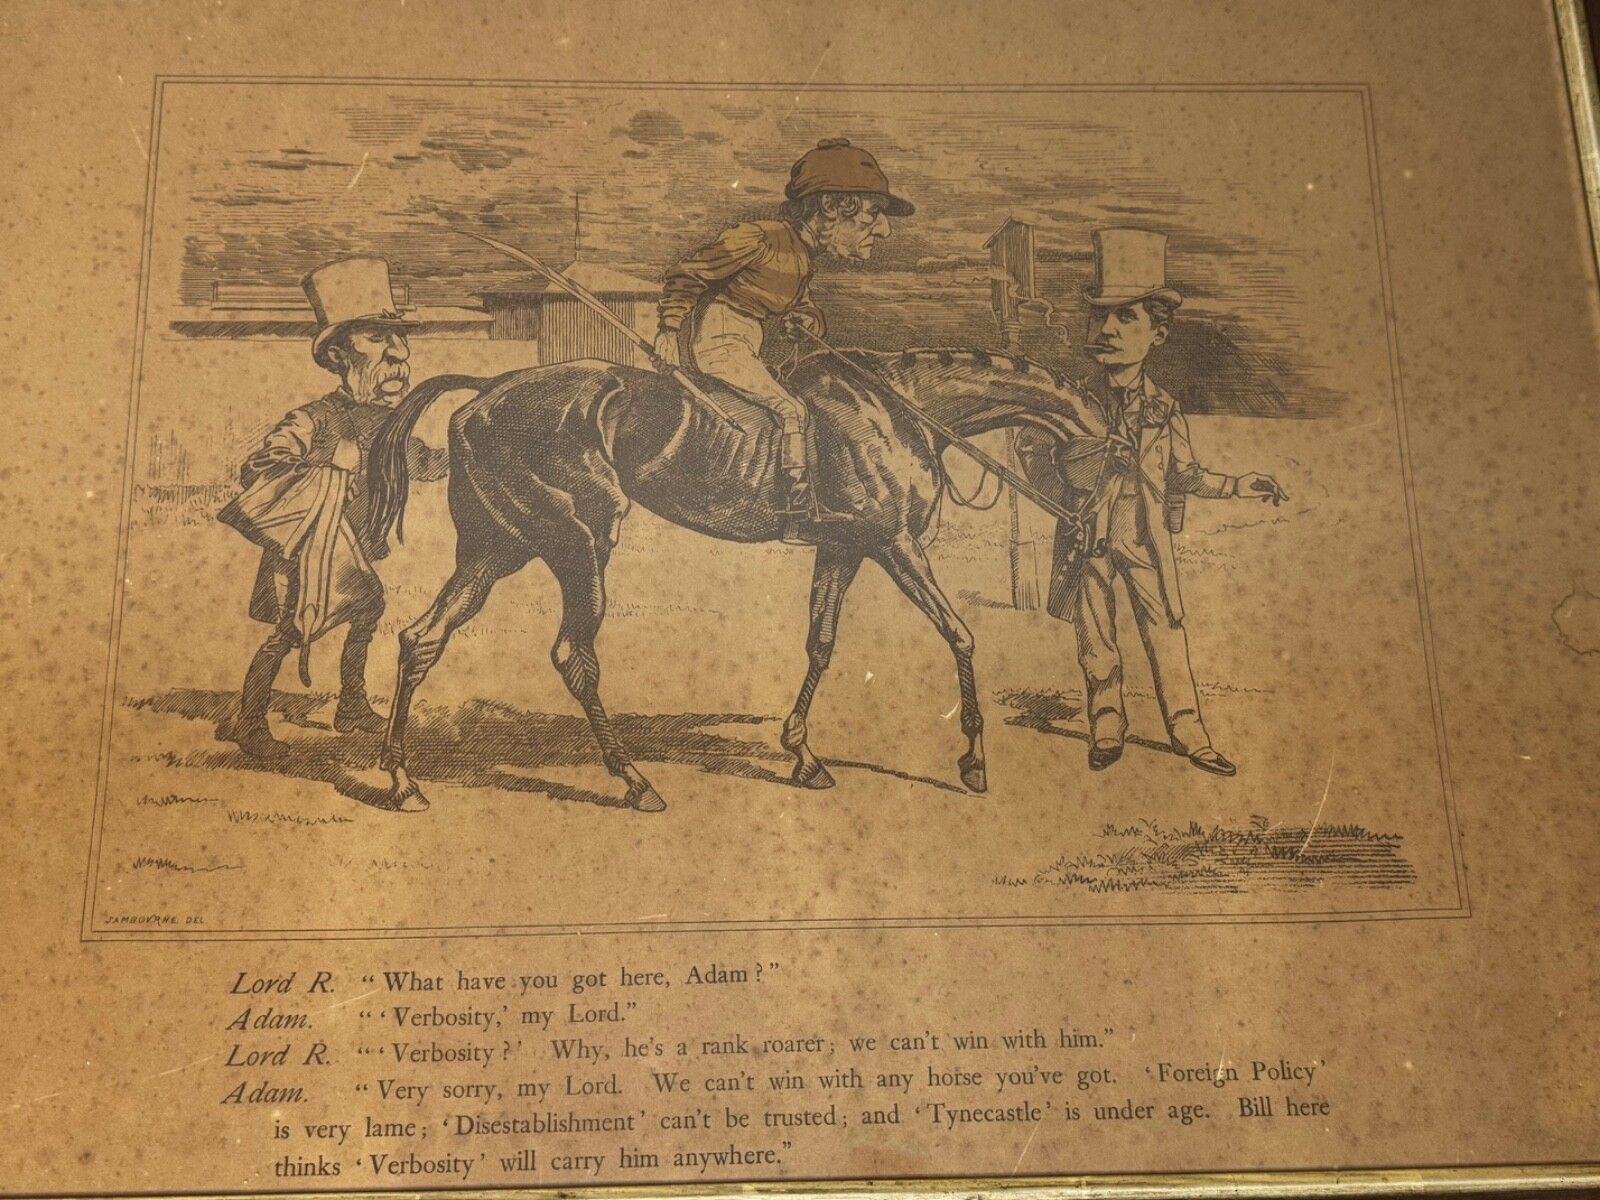 SAMBOVRNE. DEL
Lord R. “What have you got here, Adam?”
Adam. “‘Verbosity,’ my Lord.”
Lord R. “‘Verbosity?’ Why, he's a rank roarer; we can't win with him.”
Adam. “Very sorry, my Lord. We can't win with any horse you've got. ‘Foreign Policy’
is very lame; ‘Disestablishment’ can't be trusted; and ‘Tynecastle’ is under age. Bill here
thinks ‘Verbosity’ will carry him anywhere.”